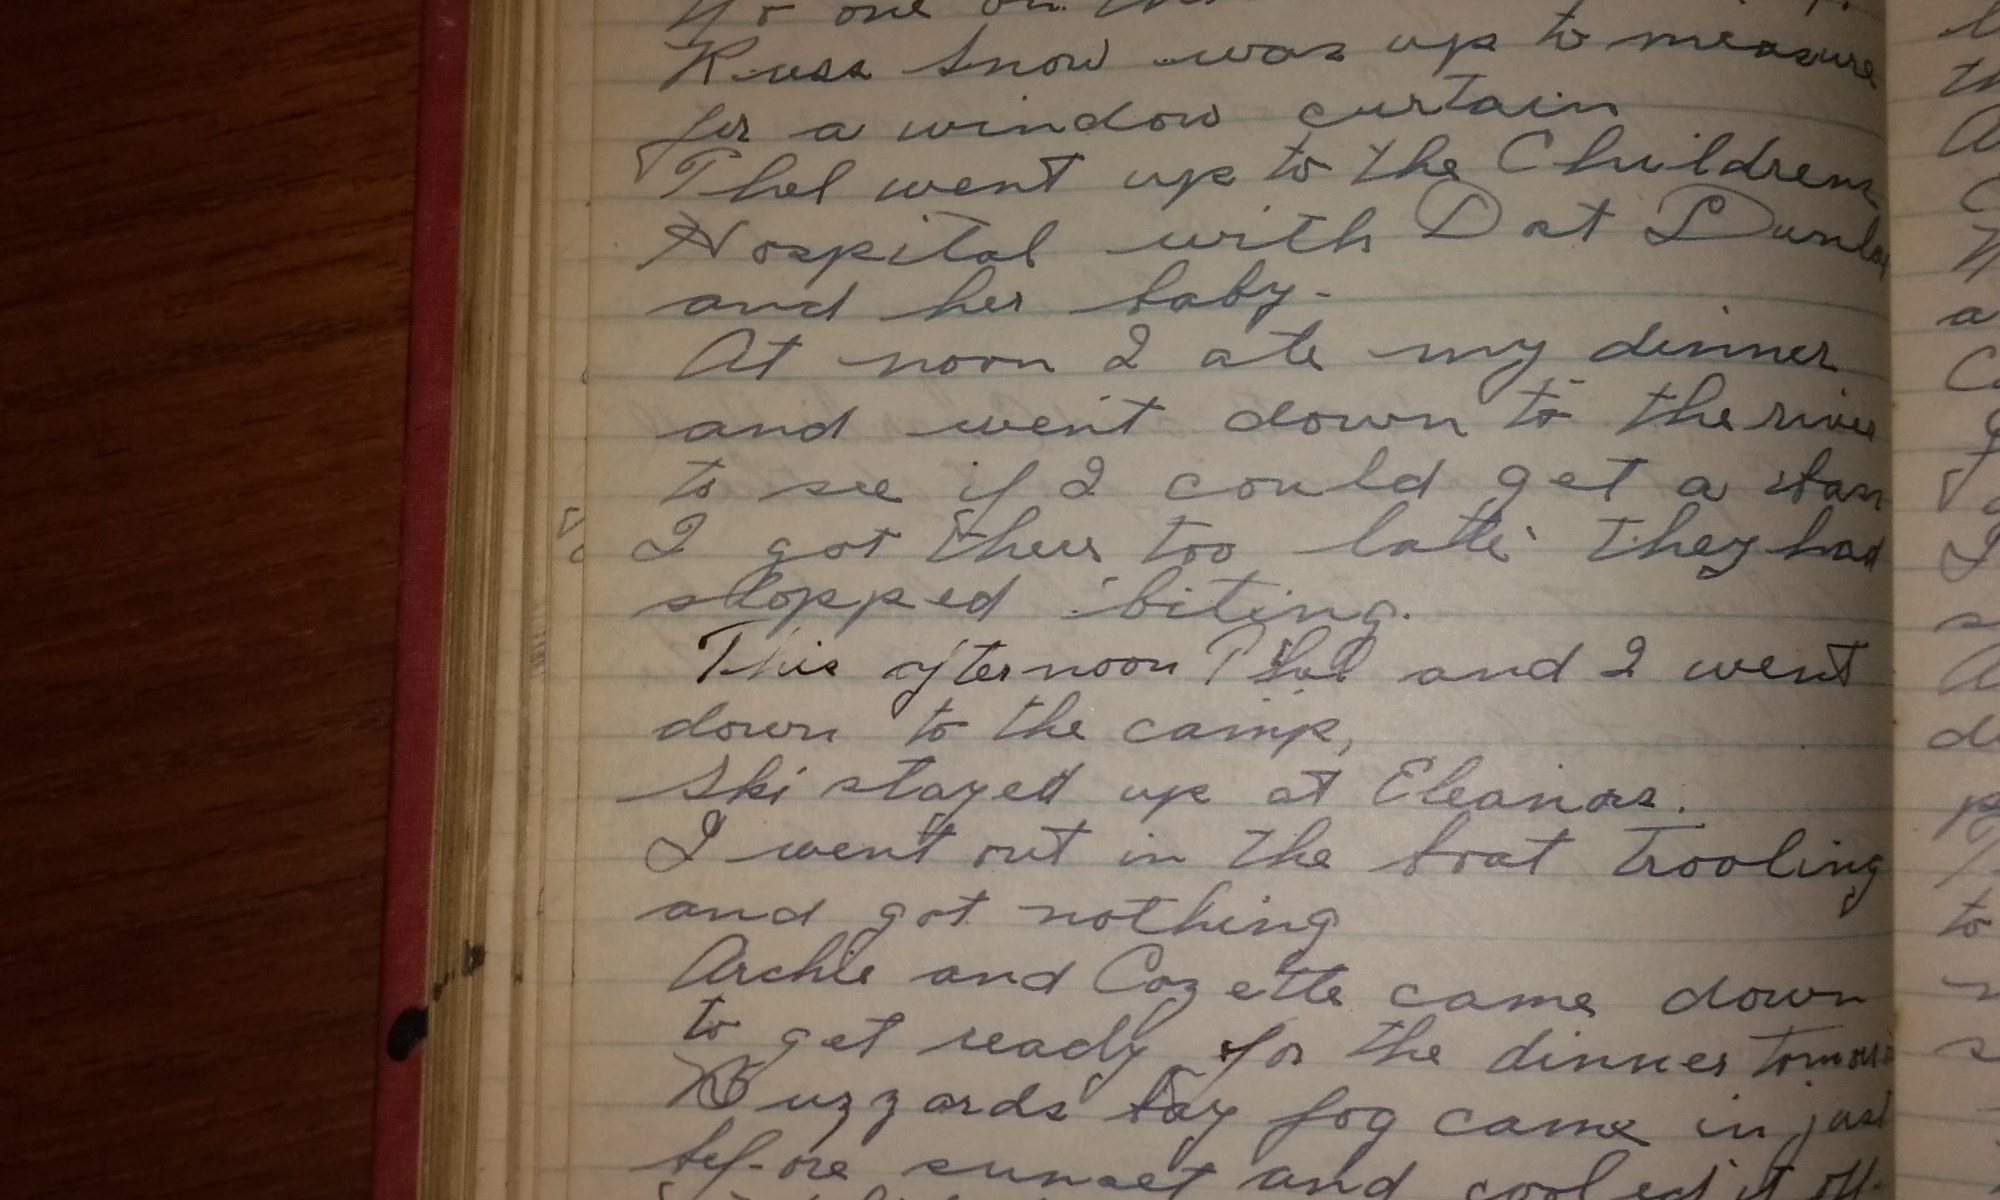 one on
Russ Snow was up to measure
for a window curtain
Thel went up to the Childrens
Hospital with Dot Dunlap
and her baby.
At noon I ate my dinner
and went down to the river
to see if I could get a
I got there too late they had
stopped biting.
This afternoon Thel and I went
down to the camp,
Ski stayed up at Eleanors.
I went out in the boat trooling
and got nothing
Archie and Cozette came down
to get ready for the dinner
Buzzards bay fog came in just
before sunset and cooled it off.